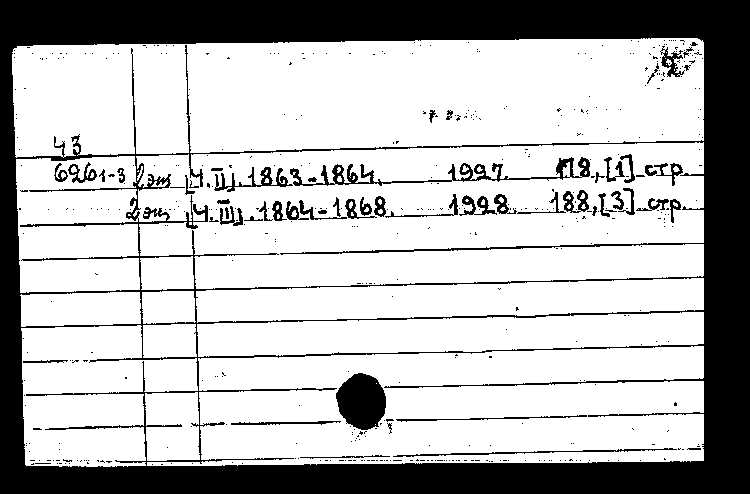 43
6261-3 2 экз [Ч. II]. 1863-1864. 1927. 178, [1] стр.
2 экз [Ч. III]. 1864-1868. 1928. 188, [3] стр.